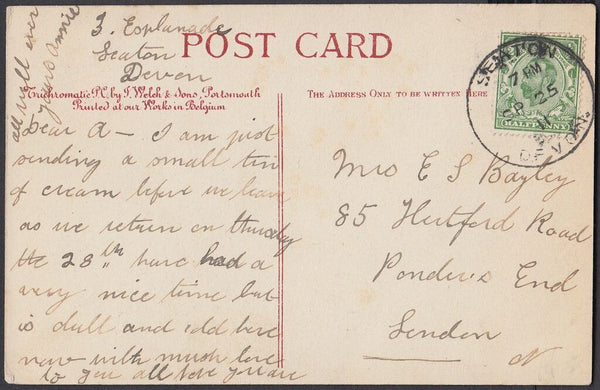 3. Esplanade
Seaton
Devon
POST CARD
Trichromatic P.C. by J. Welch & Sons, Portsmouth
Printed at our Works in Belgium
THE ADDRESS ONLY TO BE WRITTEN HERE
Dear A — I am just
sending a small tin
of cream before we leave
as we return on thursday
the 28th have had a
very nice time but
is dull and cold here
now with much love
to you all love
all well ever
yours Annie
Mrs E S Bayley
85 Hertford Road
Ponders End
London
N
SEATON
7 PM
25
DEVON
HALFPENNY